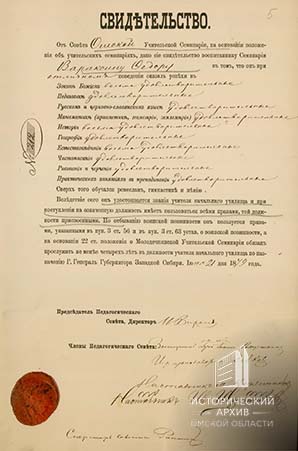 5
СВИДѢТЕЛЬСТВО.
Отъ Совѣта Омской Учительской Семинаріи, на основаніи положенія
объ учительскихъ семинаріяхъ, дано сіе свидѣтельство воспитаннику Семинаріи
Вараксину Ѳедору въ томъ, что онъ при
отличномъ поведеніи оказалъ успѣхи въ
Законѣ Божіемъ весьма удовлетворительные
Педагогикѣ удовлетворительные
Русскомъ и церковно-славянскомъ языкѣ удовлетворительные
Математикѣ (ариѳметикѣ, геометріи, землемѣріи) удовлетворительные
Исторіи весьма удовлетворительные
Географіи удовлетворительные
Естествовѣдѣніи весьма удовлетворительные
Чистописаніи удовлетворительные
Рисованіи и черченіи удовлетворительные
Практическихъ занятіяхъ въ преподаваніи удовлетворительные
Сверхъ того обучался ремесламъ, гимнастикѣ и пѣнію.
Вслѣдствіе сего онъ удостоивается званія учителя начальнаго училища и при
поступленіи на означенную должность имѣетъ пользоваться всѣми правами, той долж-
ности присвоенными. По отбыванію воинской повинности онъ пользуется прави-
лами, указанными въ пун. 3 ст. 56 и въ пун. 3 ст. 63 устав. о воинской повинности, а
на основаніи 22 ст. положенія о Молодечненской Учительской Семинаріи обязанъ
прослужить не менѣе четырехъ лѣтъ въ должности учителя начальнаго училища по наз-
наченію Г. Генералъ Губернатора Западной Сибири. 21 дня 18 года.
№
Предсѣдатель Педагогическаго
Совѣта, Директоръ
Члены Педагогическаго Совѣта:
Наставникъ
Секретарь Совѣта
ИСТОРИЧЕСКИЙ
АРХИВ
ОМСКОЙ ОБЛАСТИ